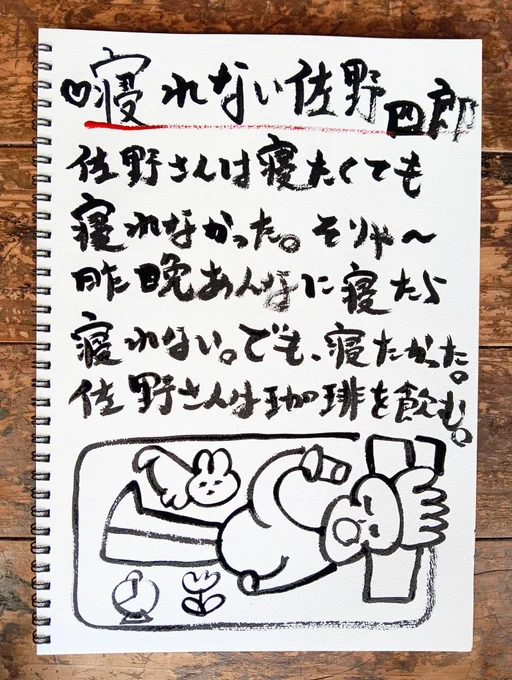 ♡寝れない佐野四郎
佐野さんは寝たくても
寝れなかった。そりゃ〜
昨晩あんなに寝たら
寝れない。でも、寝たかった。
佐野さんは珈琲を飲む。